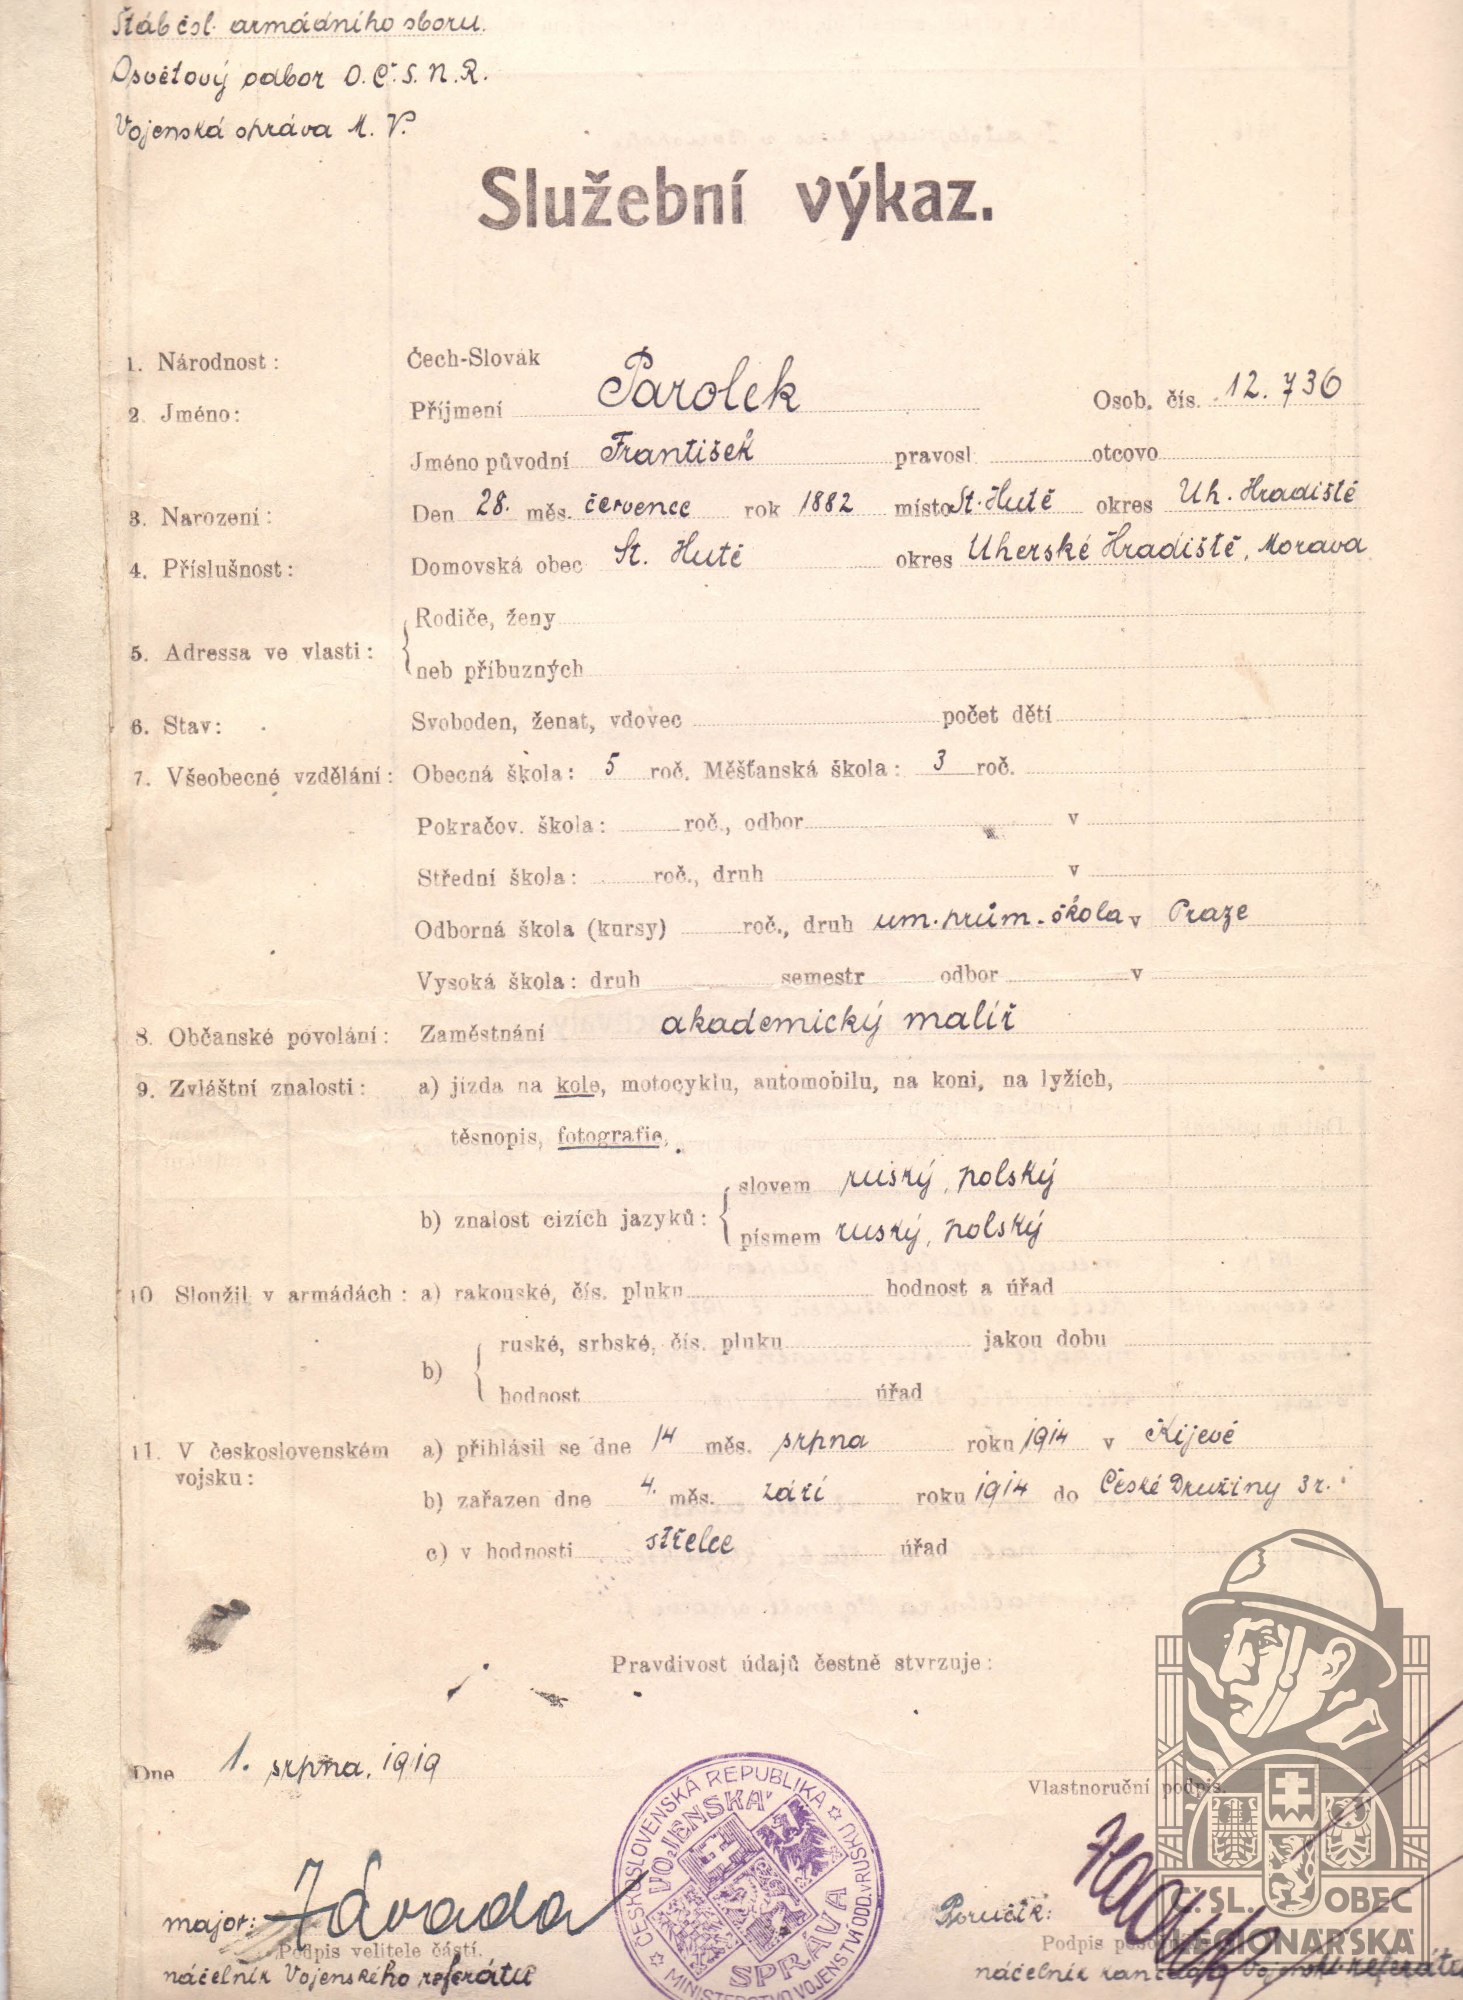 Štáb čsl. armádního sboru.
Osvětový odbor O.Č.S.N.R.
Vojenská správa M.V.
Služební výkaz.
1. Národnost: Čech-Slovák
2. Jméno: Příjmení Parolek Osob. čís. 12.736
Jméno původní František pravosl. otcovo
3. Narození: Den 28. měs. července rok 1882 místo St. Hutě okres Uh. Hradiště
4. Příslušnost: Domovská obec St. Hutě okres Uherské Hradiště, Morava
5. Adressa ve vlasti: Rodiče, ženy
neb příbuzných
6. Stav: Svoboden, ženat, vdovec počet dětí
7. Všeobecné vzdělání: Obecná škola: 5 roč. Měšťanská škola: 3 roč.
Pokračov. škola: roč., odbor v
Střední škola: roč., druh v
Odborná škola (kursy) roč., druh um. prům. škola v Praze
Vysoká škola: druh semestr odbor v
8. Občanské povolání: Zaměstnání akademický malíř
9. Zvláštní znalosti: a) jízda na kole, motocyklu, automobilu, na koni, na lyžích,
těsnopis, fotografie.
b) znalost cizích jazyků: slovem ruský, polský
písmem ruský, polský
10 Sloužil v armádách: a) rakouské, čís. pluku hodnost a úřad
b) ruské, srbské, čís. pluku jakou dobu
hodnost úřad
11. V československém vojsku: a) přihlásil se dne 14 měs. srpna roku 1914 v Kijevě
b) zařazen dne 4. měs. září roku 1914 do České Družiny 3 r.
c) v hodnosti střelce úřad
Pravdivost údajů čestně stvrzuje:
Dne 1. srpna. 1919
Vlastnoruční podpis.
ČESKOSLOVENSKÁ REPUBLIKA
VOJENSKÁ SPRÁVA
MINISTERSTVO VOJENSTVÍ ODD. v RUSKU
major: Závada
Podpis velitele části.
náčelník Vojenského referátu
Poručík:
Podpis
náčelník Vojensk. referátu
ČSL. OBEC
LEGIONÁŘSKÁ